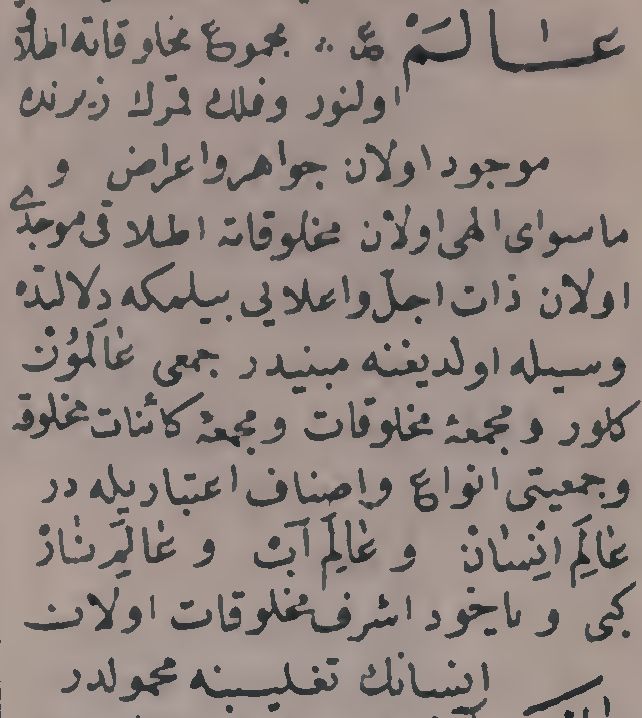 عَالَمْ ع :. مجموع مخلوقاته اطلاق
اولنور وفلك قمرك زيرنده
موجود اولان جواهر واعراض و
ماسواى الهى اولان مخلوقاته اطلاقى موجدى
اولان ذات اجلّ واعلايى بيلمكه دلالتده
وسيله اولديغنه مبنيدر جمعى عَالَمُونْ
كلور و مجمعهٔ مخلوقات و مجمعهٔ كائنات مخلوقه
وجمعيتى انواع واصناف اعتباريله در
عَالَمِ اِنْسَانْ و عَالَمِ آبْ و عَالَمِ نَارْ
كبى و ياخود اشرف مخلوقات اولان
اينسانك تغليبنه محمولدر